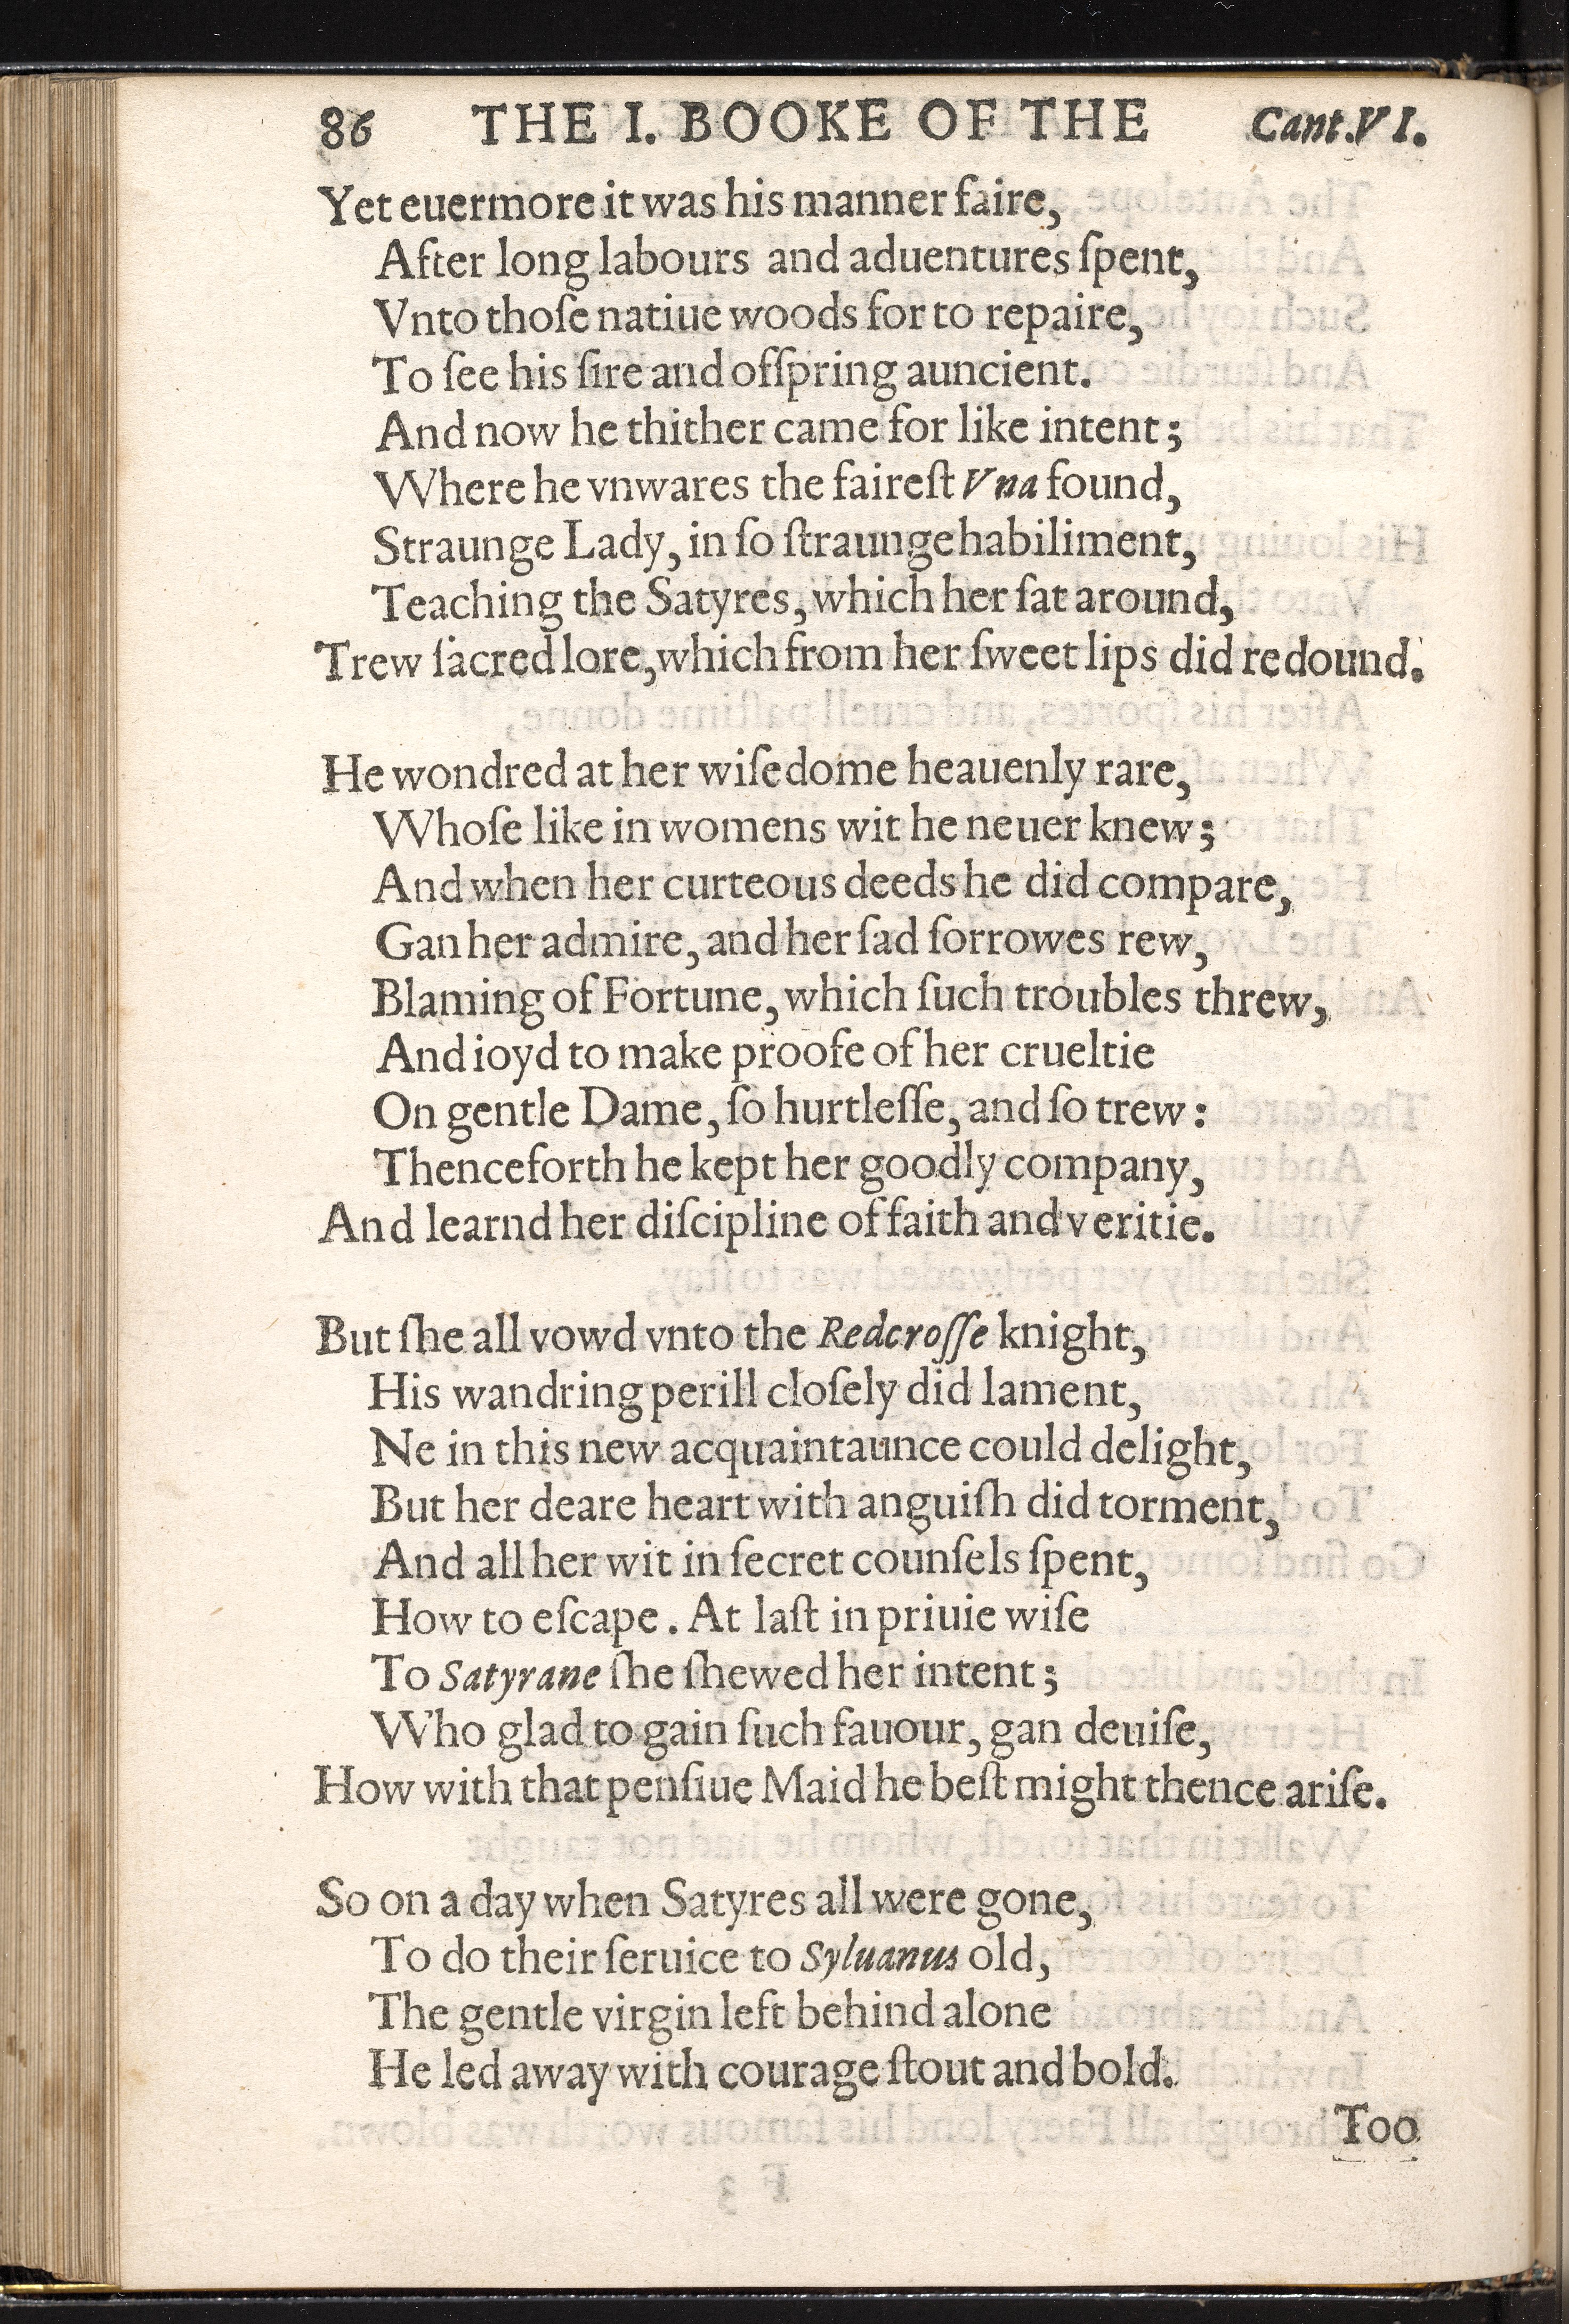 86 THE I. BOOKE OF THE Cant.VI.
Yet euermore it was his manner faire,
After long labours and aduentures ſpent,
Vnto thoſe natiue woods for to repaire,
To ſee his ſire and ofſpring auncient.
And now he thither came for like intent;
Where he vnwares the faireſt Vna found,
Straunge Lady, in ſo ſtraunge habiliment,
Teaching the Satyres, which her ſat around,
Trew ſacred lore, which from her ſweet lips did redound.
He wondred at her wiſedome heauenly rare,
Whoſe like in womens wit he neuer knew;
And when her curteous deeds he did compare,
Gan her admire, and her ſad ſorrowes rew,
Blaming of Fortune, which ſuch troubles threw,
And ioyd to make proofe of her crueltie
On gentle Dame, ſo hurtleſſe, and ſo trew:
Thenceforth he kept her goodly company,
And learnd her diſcipline of faith and veritie.
But ſhe all vowd vnto the Redcroſſe knight,
His wandring perill cloſely did lament,
Ne in this new acquaintaunce could delight,
But her deare heart with anguiſh did torment,
And all her wit in ſecret counſels ſpent,
How to eſcape. At laſt in priuie wiſe
To Satyrane ſhe ſhewed her intent;
Who glad to gain ſuch fauour, gan deuiſe,
How with that penſiue Maid he beſt might thence ariſe.
So on a day when Satyres all were gone,
To do their ſeruice to Syluanus old,
The gentle virgin left behind alone
He led away with courage ſtout and bold.
Too